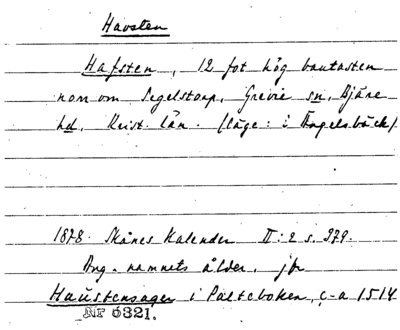 Havsten
Hafsten, 12 fot hög bautasten
norr om Segelstorp, Grevie sn, Bjäre
hd, Krist. län. (läge: i Ängelsbäck)
1878. Skånes Kalender II: 2 s. 379.
Ang. namnets ålder, jfr
Haustensager i Palteboken, c-a 1514
Nr 6321.